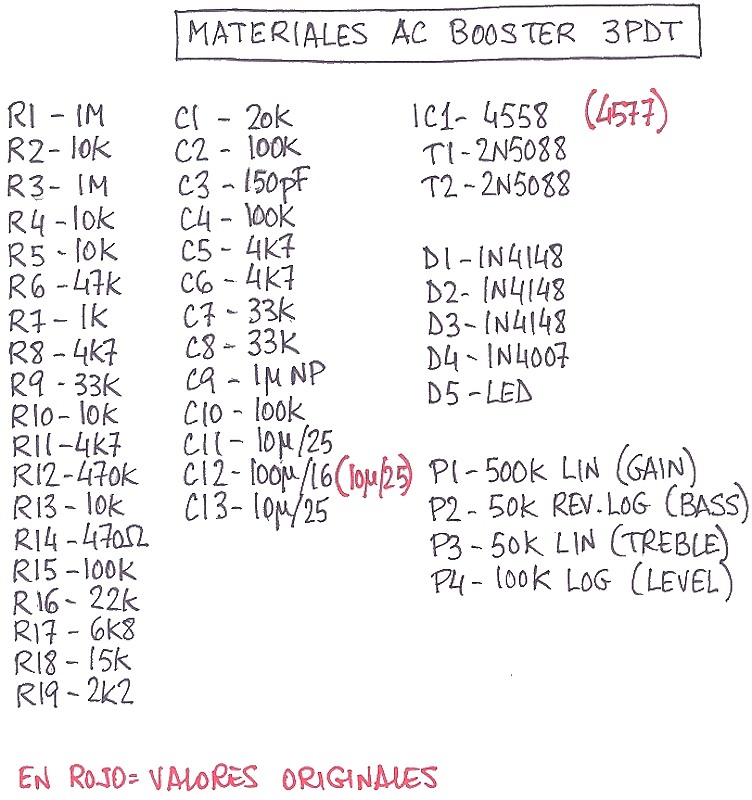 MATERIALES AC BOOSTER 3PDT
R1 - 1M
R2 - 10K
R3 - 1M
R4 - 10K
R5 - 10K
R6 - 47K
R7 - 1K
R8 - 4K7
R9 - 33K
R10 - 10K
R11 - 4K7
R12 - 470K
R13 - 10K
R14 - 470Ω
R15 - 100K
R16 - 22K
R17 - 6K8
R18 - 15K
R19 - 2K2
C1 - 20K
C2 - 100K
C3 - 150pF
C4 - 100K
C5 - 4K7
C6 - 4K7
C7 - 33K
C8 - 33K
C9 - 1µ NP
C10 - 100K
C11 - 10µ/25
C12 - 100µ/16 (10µ/25)
C13 - 10µ/25
IC1 - 4558 (4577)
T1 - 2N5088
T2 - 2N5088
D1 - 1N4148
D2 - 1N4148
D3 - 1N4148
D4 - 1N4007
D5 - LED
P1 - 500K LIN (GAIN)
P2 - 50K REV.LOG (BASS)
P3 - 50K LIN (TREBLE)
P4 - 100K LOG (LEVEL)
EN ROJO = VALORES ORIGINALES